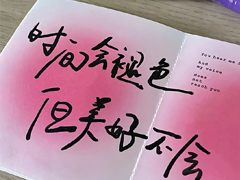 时间会褪色
但美好不会
You hear me b
And
my voice
does
not
reach you